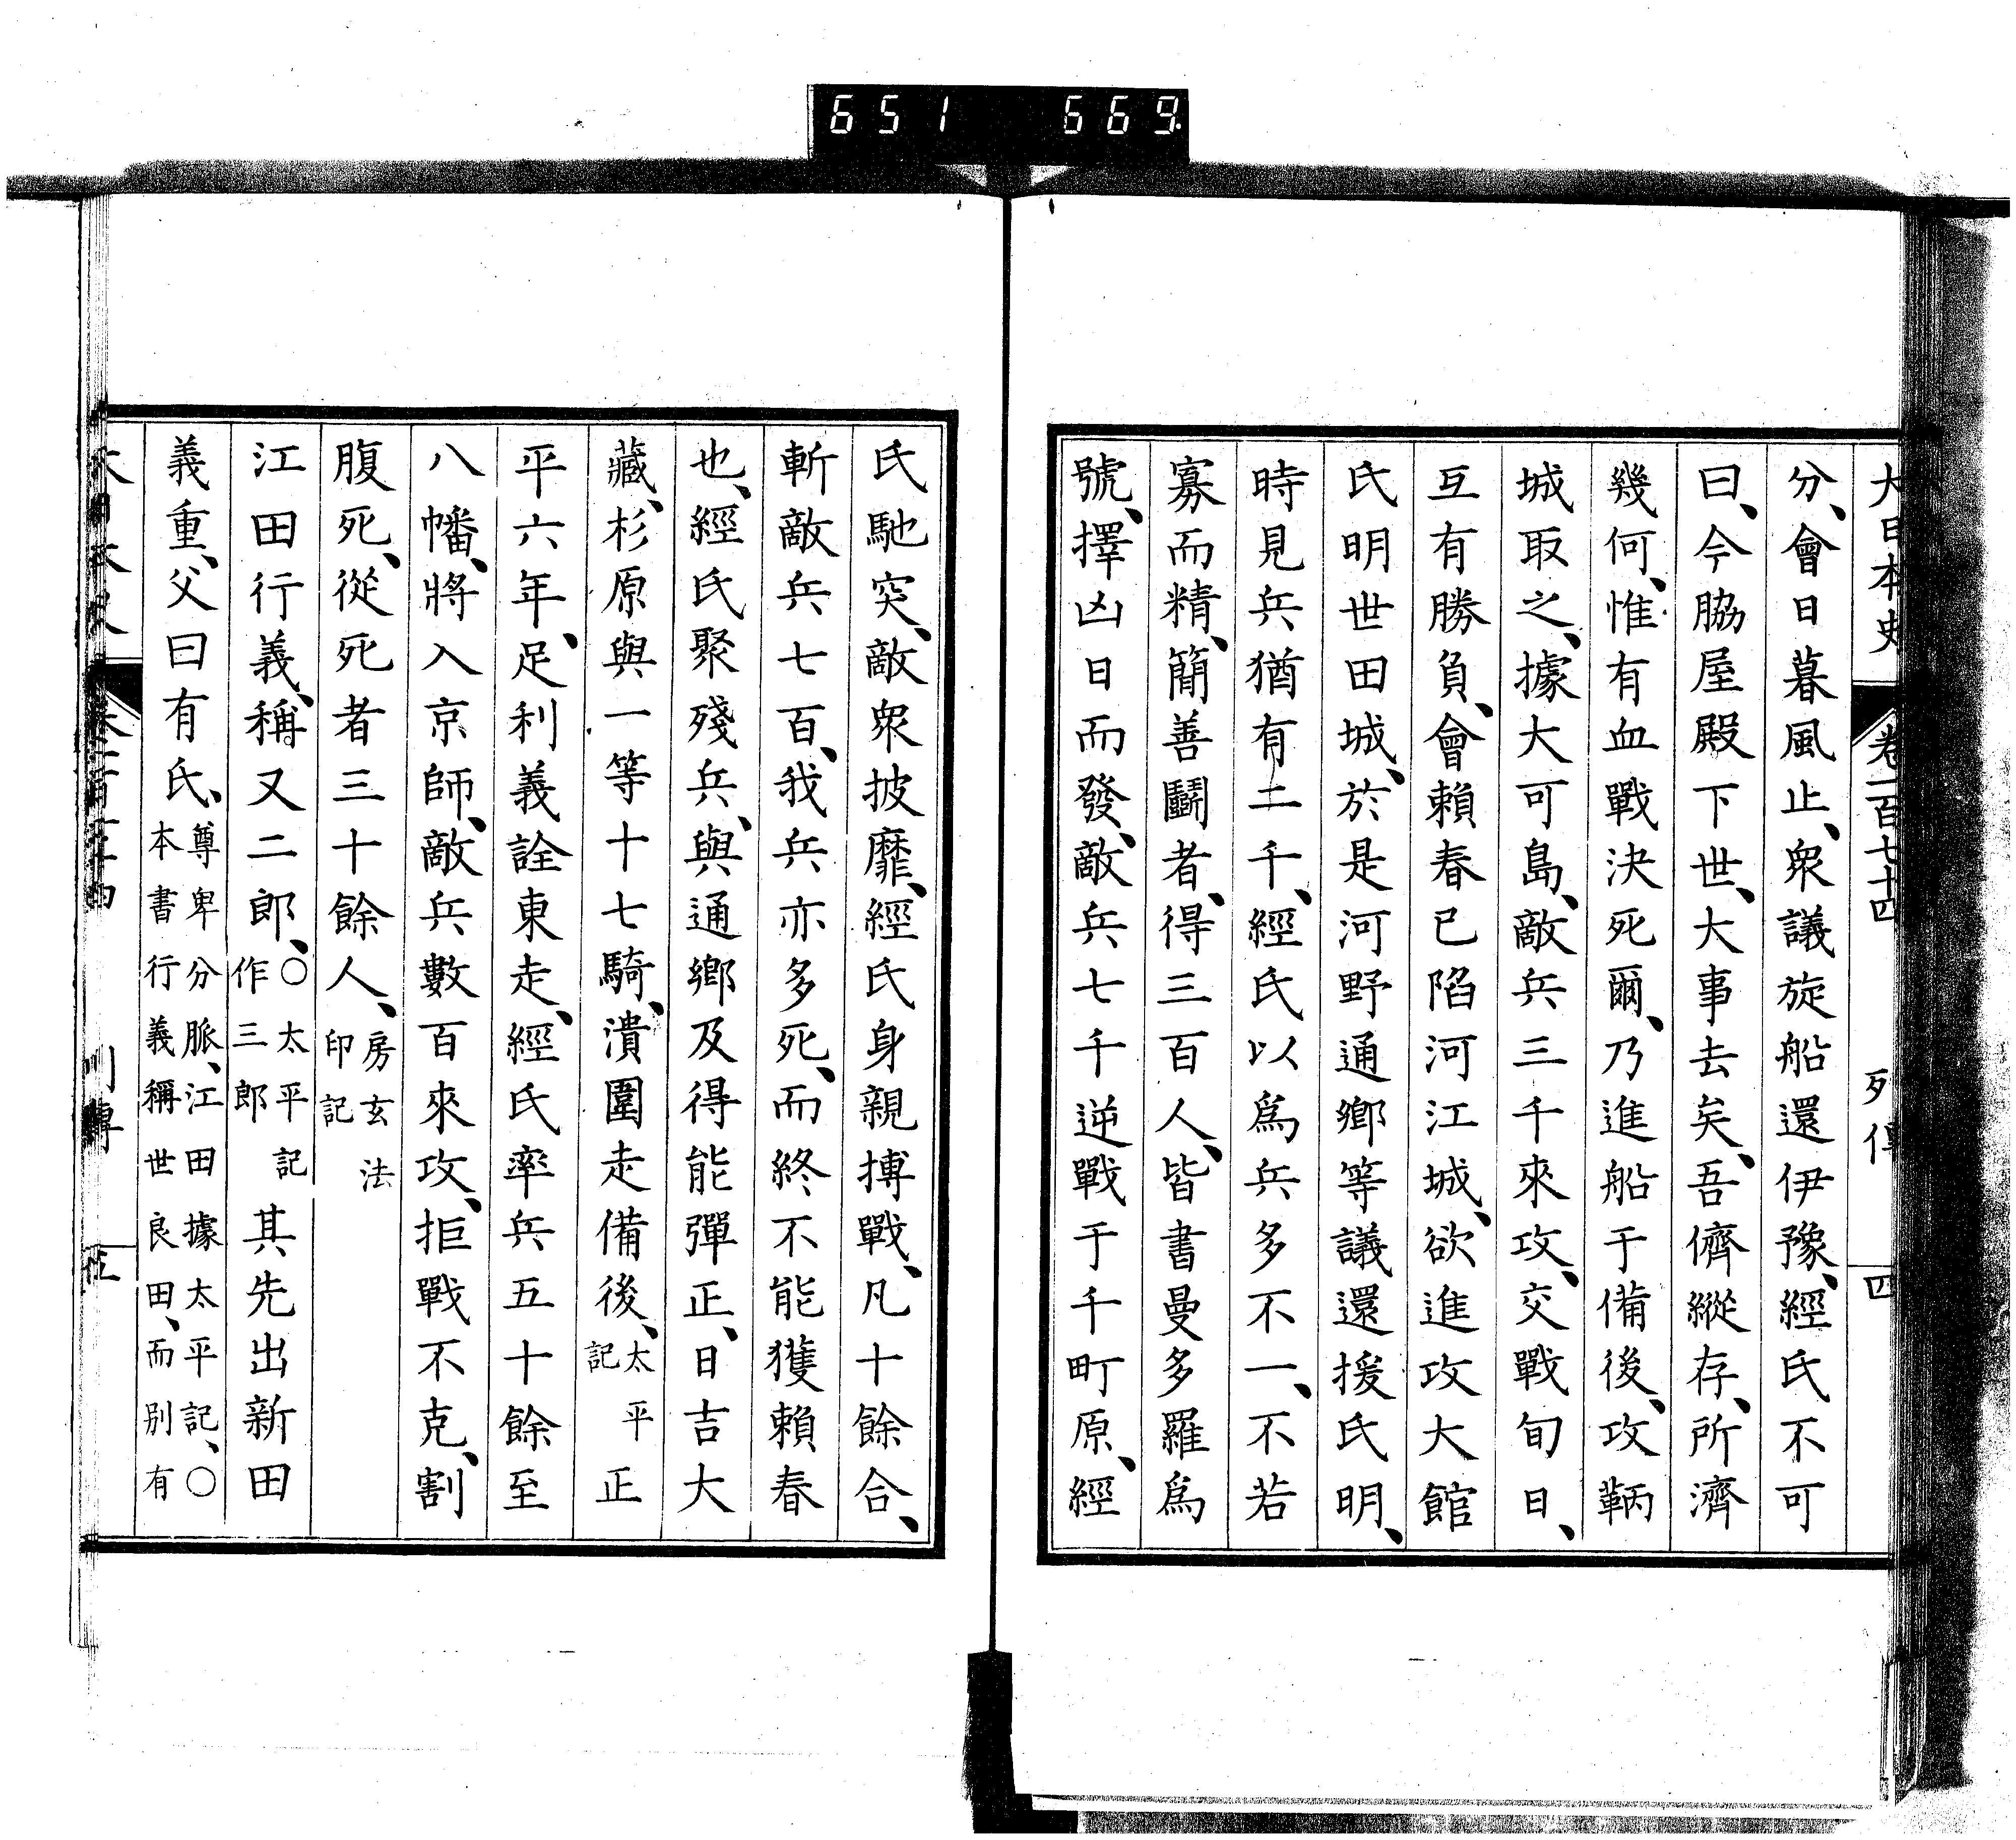 651 669
大日本史 卷一百七十四 列傳 四
分、會日暮風止、衆議旋船還伊豫、經氏不可
曰、今脇屋殿下世、大事去矣、吾儕縱存、所濟
幾何、惟有血戰決死爾、乃進船于備後、攻鞆
城取之、據大可島、敵兵三千來攻、交戰旬日、
互有勝負、會賴春已陷河江城、欲進攻大館
氏明世田城、於是河野通鄉等議還援氏明、
時見兵猶有二千、經氏以爲兵多不一、不若
寡而精、簡善鬭者、得三百人、皆書曼多羅爲
號、擇凶日而發、敵兵七千逆戰于千町原、經
氏馳突、敵衆披靡、經氏身親搏戰、凡十餘合、
斬敵兵七百、我兵亦多死、而終不能獲賴春
也、經氏聚殘兵、與通鄉及得能彈正、日吉大
藏、杉原與一等十七騎、潰圍走備後、太平記 正
平六年、足利義詮東走、經氏率兵五十餘至
八幡、將入京師、敵兵數百來攻、拒戰不克、割
腹死、從死者三十餘人、房玄法印記
江田行義、稱又二郎、〇太平記作三郎 其先出新田
義重、父曰有氏、尊卑分脈、江田據太平記、〇本書行義稱世良田、而別有